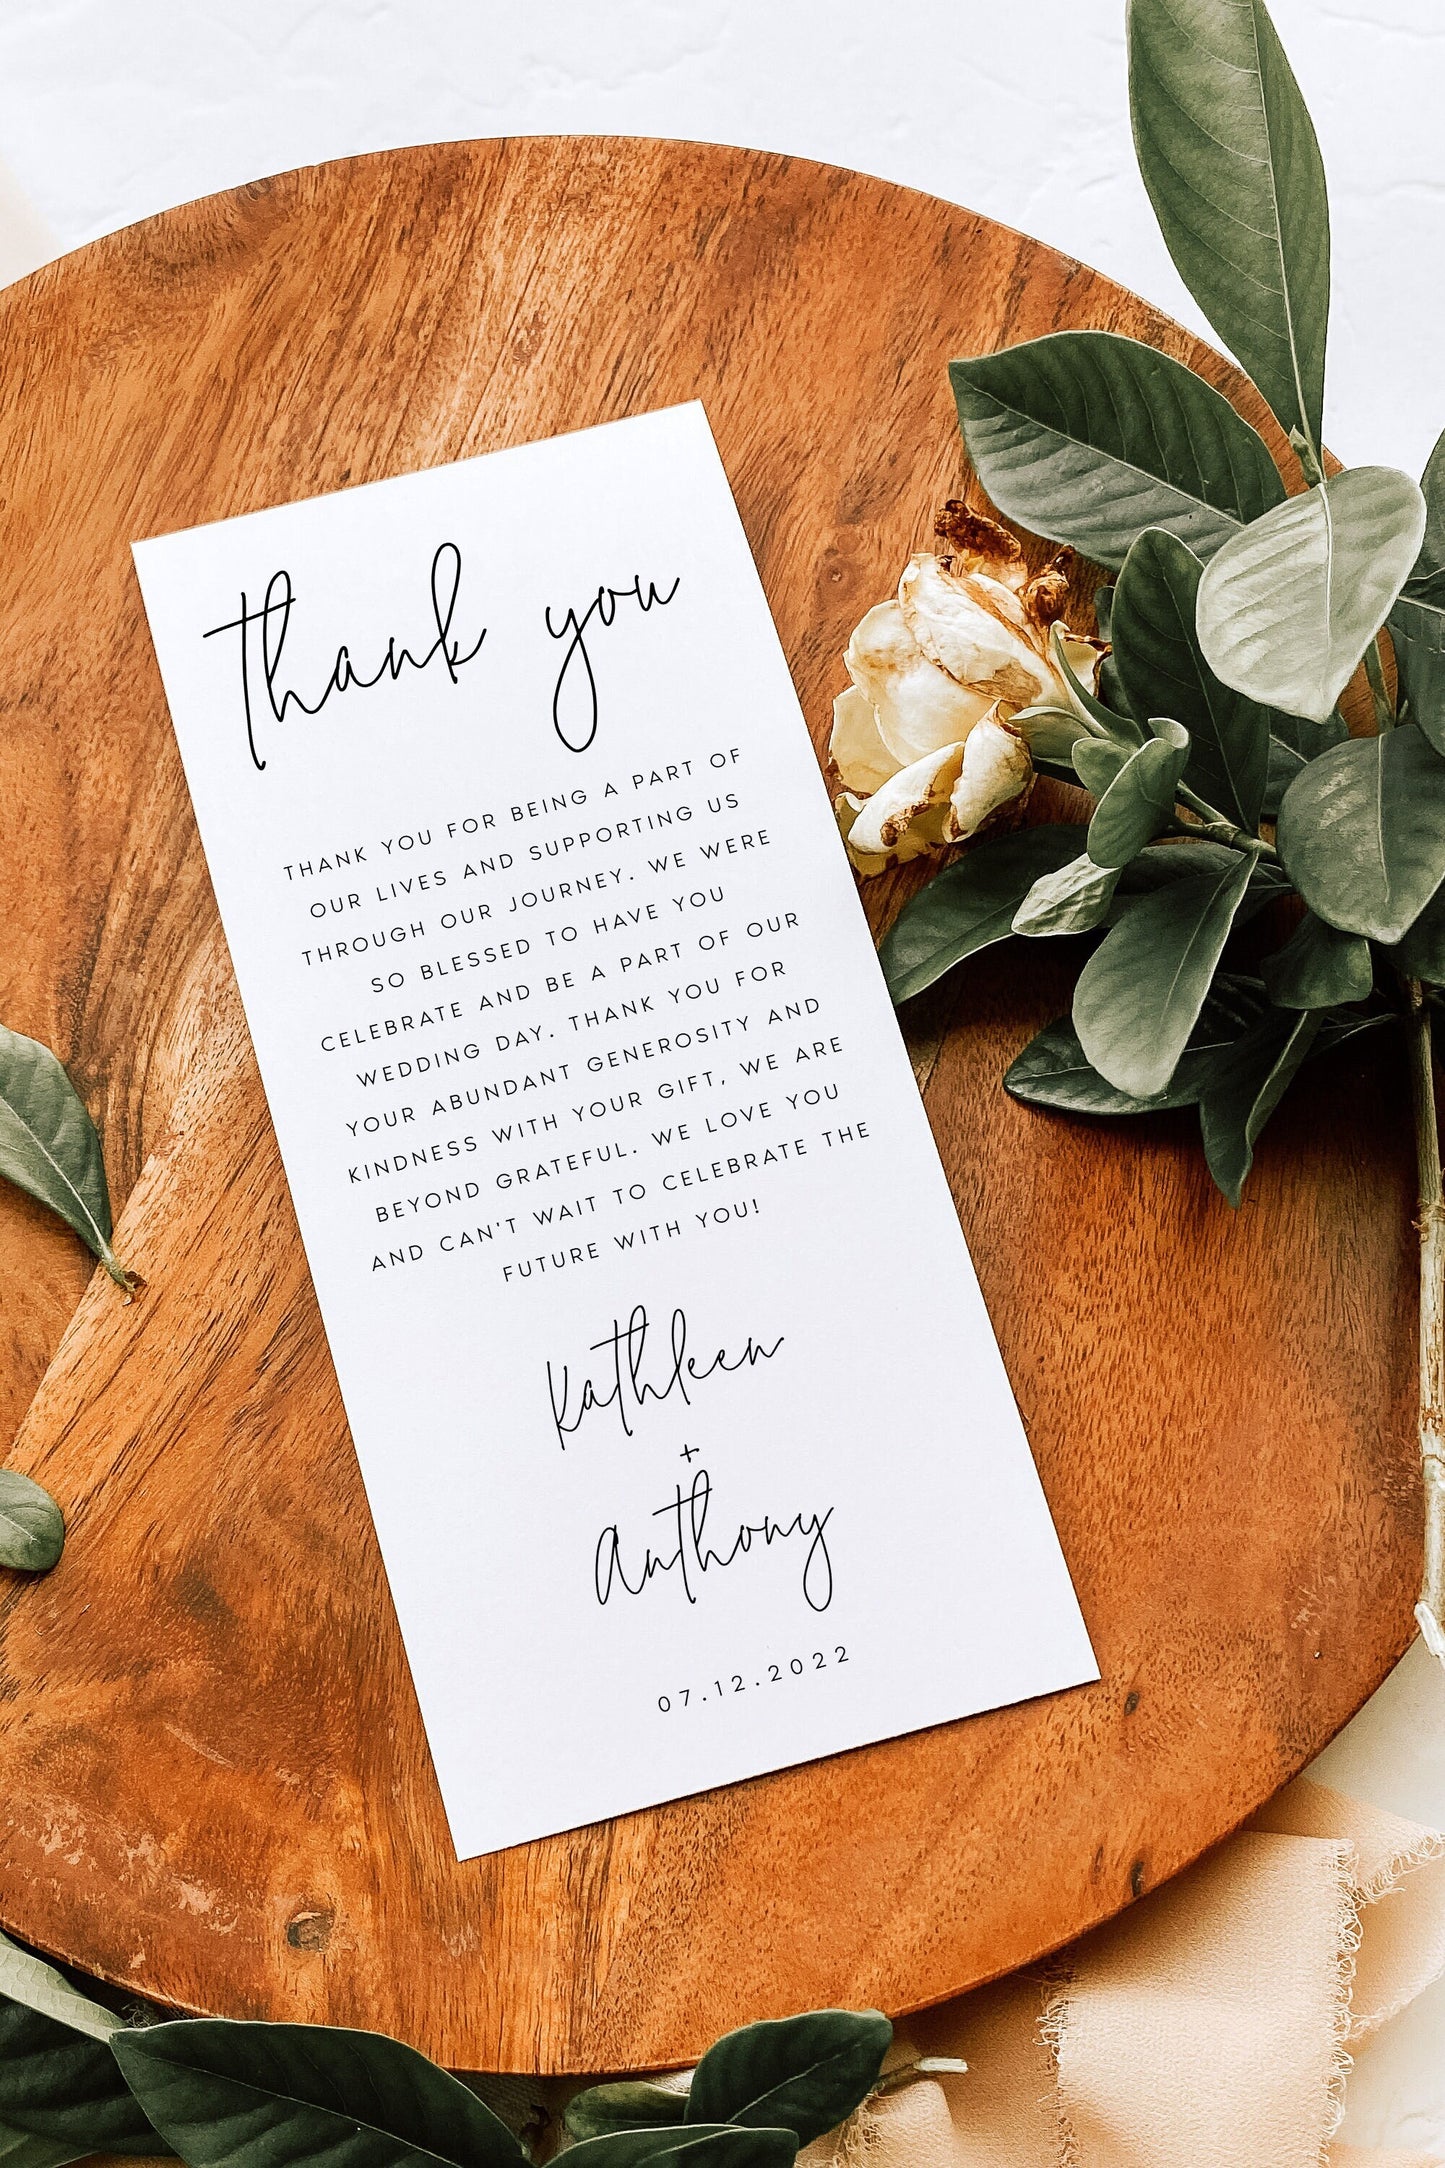 thank you
THANK YOU FOR BEING A PART OF
OUR LIVES AND SUPPORTING US
THROUGH OUR JOURNEY. WE WERE
SO BLESSED TO HAVE YOU
CELEBRATE AND BE A PART OF OUR
WEDDING DAY. THANK YOU FOR
YOUR ABUNDANT GENEROSITY AND
KINDNESS WITH YOUR GIFT, WE ARE
BEYOND GRATEFUL. WE LOVE YOU
AND CAN'T WAIT TO CELEBRATE THE
FUTURE WITH YOU!
Kathleen
+
Anthony
07.12.2022